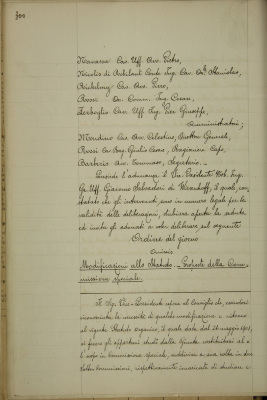 Cav. Uff. Avv. Pietro,
Nicolis di Robilant Conte Ing. Cav. Stanislao,
Cav. Avv. Piero,
Rossi Comm. Ing. Cesare,
Cav. Uff. Ing. Pier Giuseppe,
Amministratori;
Mondino Cav. Avv. Celestino, Direttore Generale,
Rossi Cav. Rag. Giulio Cesare, Ragioniere Capo,
Barberis Avv. Tommaso, Segretario.
Presiede l'adunanza il Vice Presidente Nob. Ing.
Gr. Uff. Giacomo Salvadori di Wiesenhoff, il quale, con-
statato che gli intervenuti sono in numero legale per la
validità delle deliberazioni, dichiara aperta la seduta
ed invita gli adunati a voler deliberare sul seguente
Ordine del giorno
Modificazioni allo Statuto. - Proposte della Com-
missione speciale.
Il Sig. Vice-Presidente al Consiglio che,
la necessità di qualche modificazione
Statuto organico, il quale data dal 26 maggio 1901,
si fecero gli opportuni studi dalla Giunta
Commissione speciale, suddivisa a sua volta in due
Sotto-Commissioni, rispettivamente incaricate di studiare e